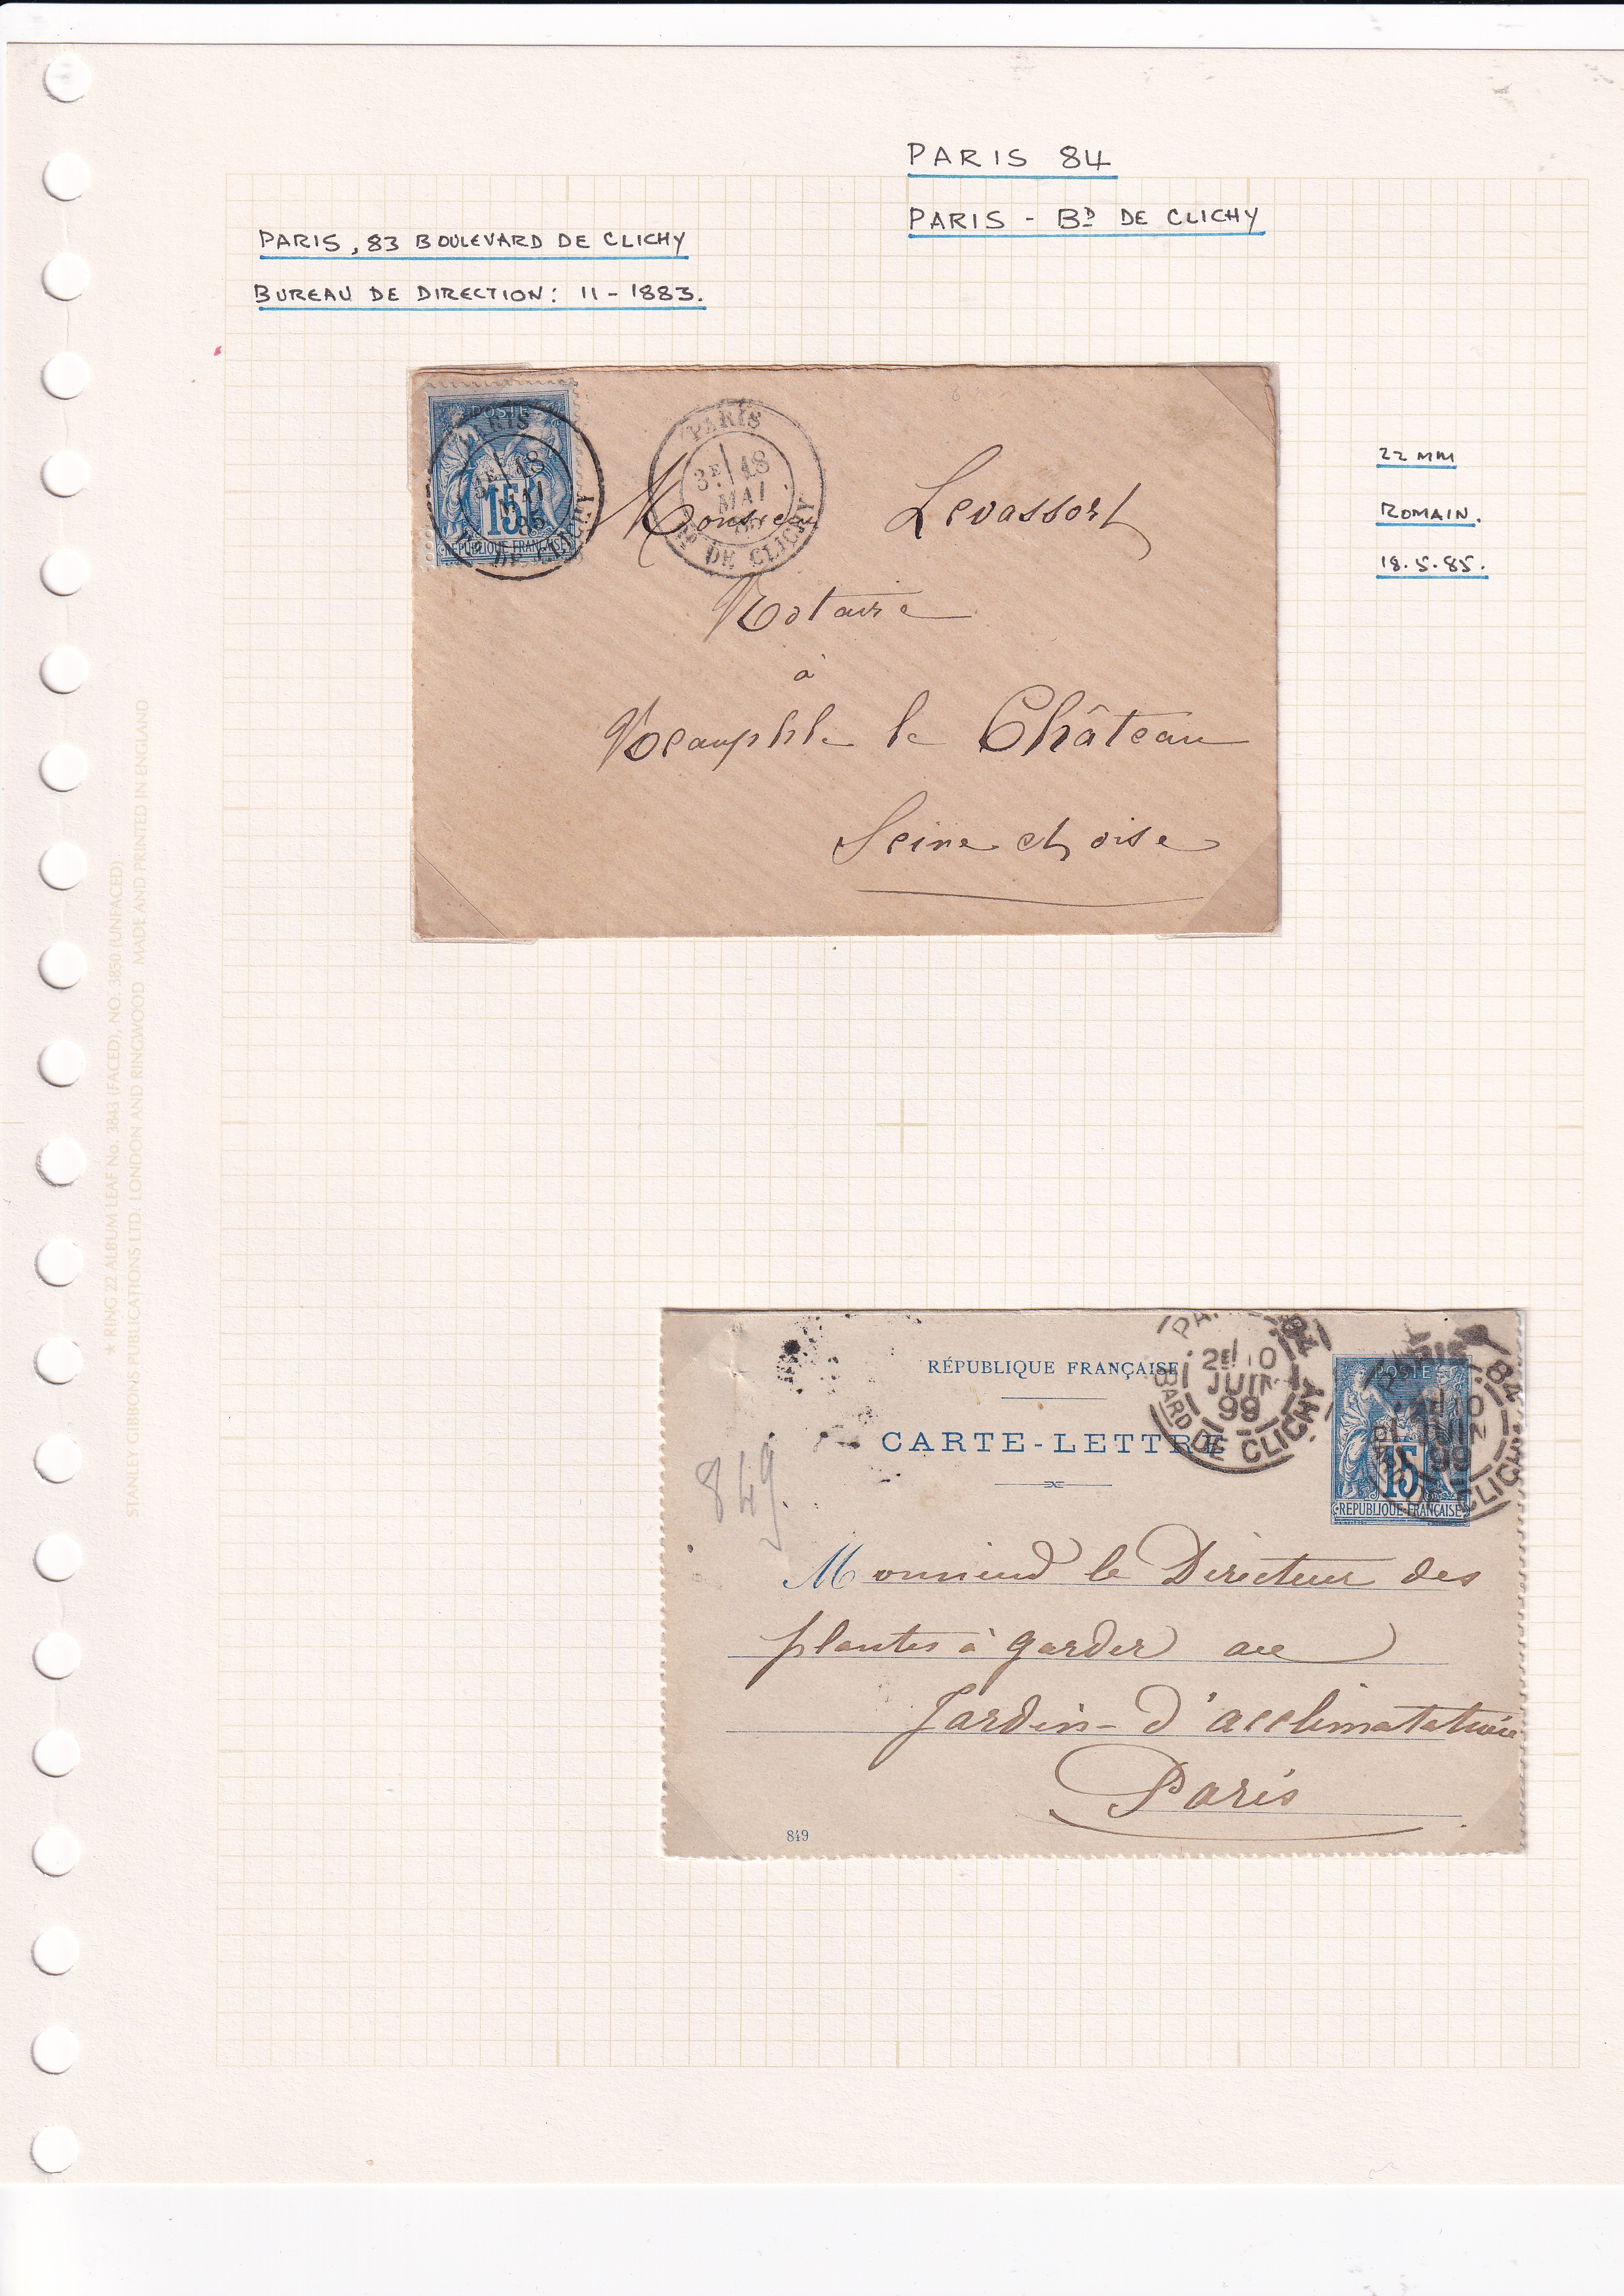 PARIS 84
PARIS - BD DE CLICHY
PARIS, 83 BOULEVARD DE CLICHY
BUREAU DE DIRECTION: 11-1883.
POSTE
15
REPUBLIQUE FRANÇAISE
PARIS
3E 18
MAI
85
BD DE CLICHY
PARIS
3E 18
MAI
BD DE CLICHY
Monsieur Levassort
Notaire
à
Neauphle le Château
Seine et oise
22 MM
ROMAIN.
18.5.85.
★ RING 22 ALBUM LEAF No. 3843 (FACED), NO. 3850 (UNFACED)
STANLEY GIBBONS PUBLICATIONS LTD. LONDON AND RINGWOOD MADE AND PRINTED IN ENGLAND
RÉPUBLIQUE FRANÇAISE
CARTE-LETTRE
84
2E 10
JUIN
99
BARD DE CLICHY
POSTE
15
REPUBLIQUE FRANÇAISE
84
10
99
CLICHY
849.
Monsieur le Directeur des
plantes à garder au
Jardin-d'acclimatation
Paris
849